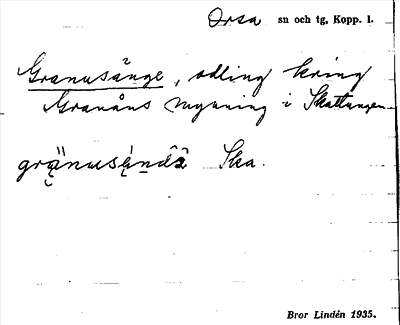 Orsa sn och tg, Kopp. l.
Granusänge, odling kring
Granåns mynning i Skattungen
gränusä́ndä̂ Ska.
Bror Lindén 1935.